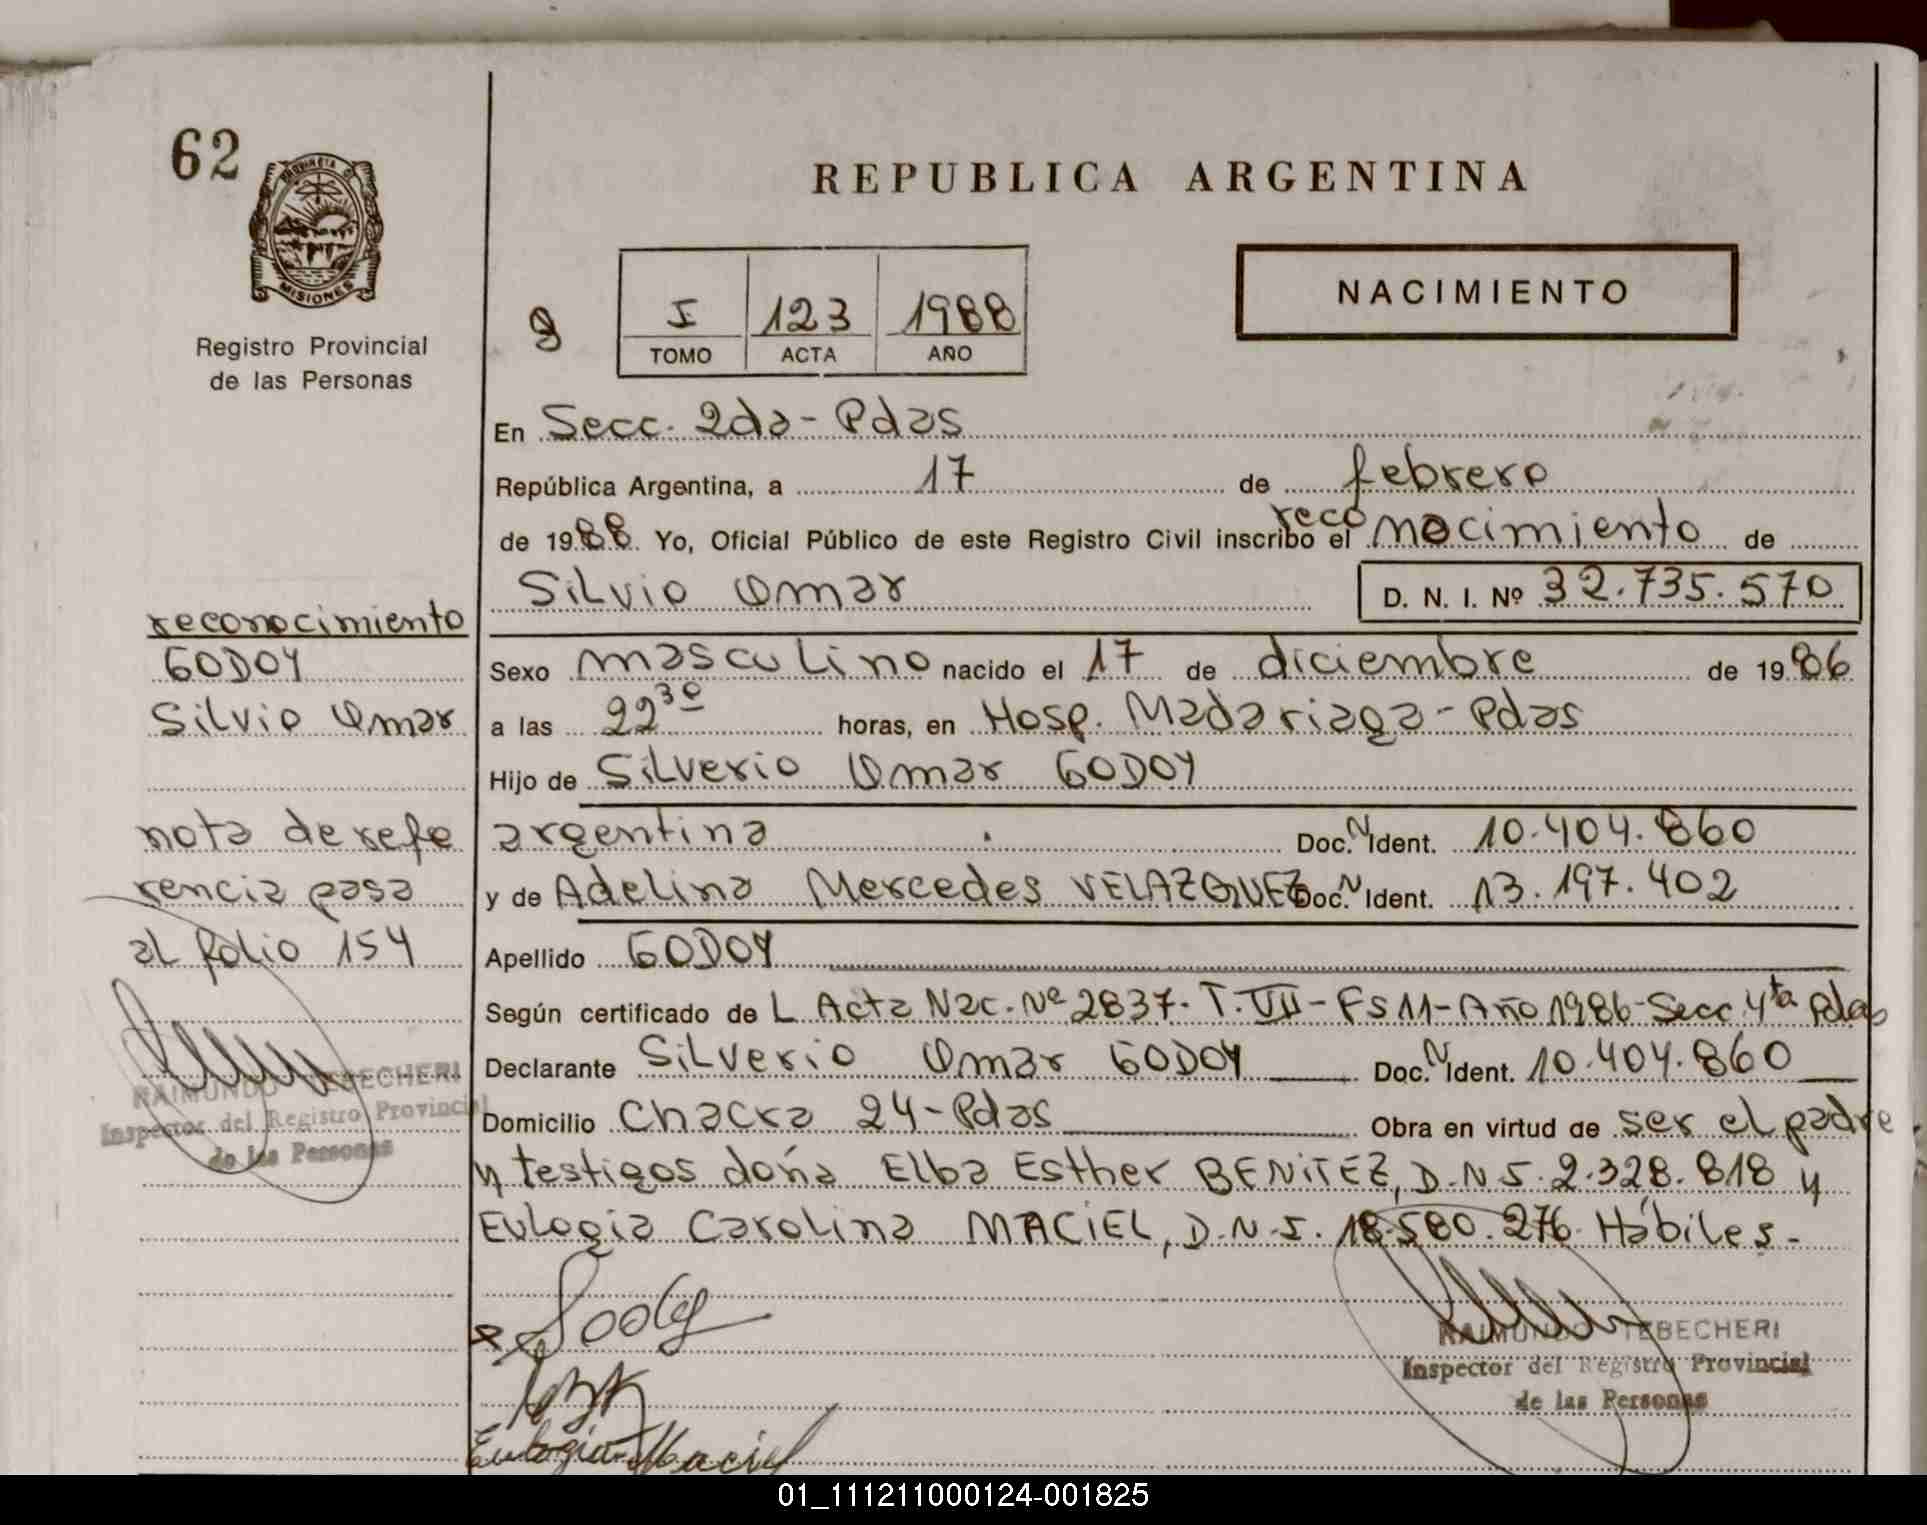 62
PROVINCIA D
MISIONES
Registro Provincial
de las Personas
REPUBLICA ARGENTINA
I 123 1988
TOMO ACTA AÑO
NACIMIENTO
En Secc. 2da - Pdas
República Argentina, a 17 de febrero
de 1988. Yo, Oficial Público de este Registro Civil inscribo el reconocimiento de
Silvio Omar D. N. I. Nº 32.735.570
reconocimiento
GODOY
Silvio Omar
nota de refe
rencia pasa
al folio 154
RAIMUNDO TEBECHERI
Inspector del Registro Provincial
de las Personas
Sexo masculino nacido el 17 de diciembre de 1986
a las 22³⁰ horas, en Hosp. Madariaga - Pdas
Hijo de Silverio Omar GODOY
argentina Doc. N Ident. 10.404.860
y de Adelina Mercedes VELAZQUEZ Doc. N Ident. 13.197.402
Apellido GODOY
Según certificado de L Acta Nac. Nº 2837. T. VII - Fs 11 - Año 1986 - Secc. 4ta Pdas
Declarante Silverio Omar GODOY Doc. N Ident. 10.404.860
Domicilio Chacra 24 - Pdas Obra en virtud de ser el padre
y testigos doña Elba Esther BENITEZ, D.N.I. 2.328.818 y
Eulogia Carolina MACIEL, D.N.I. 18.580.276. Hábiles.-
Godoy
Eulogia Maciel
RAIMUNDO TEBECHERI
Inspector del Registro Provincial
de las Personas
01_111211000124-001825